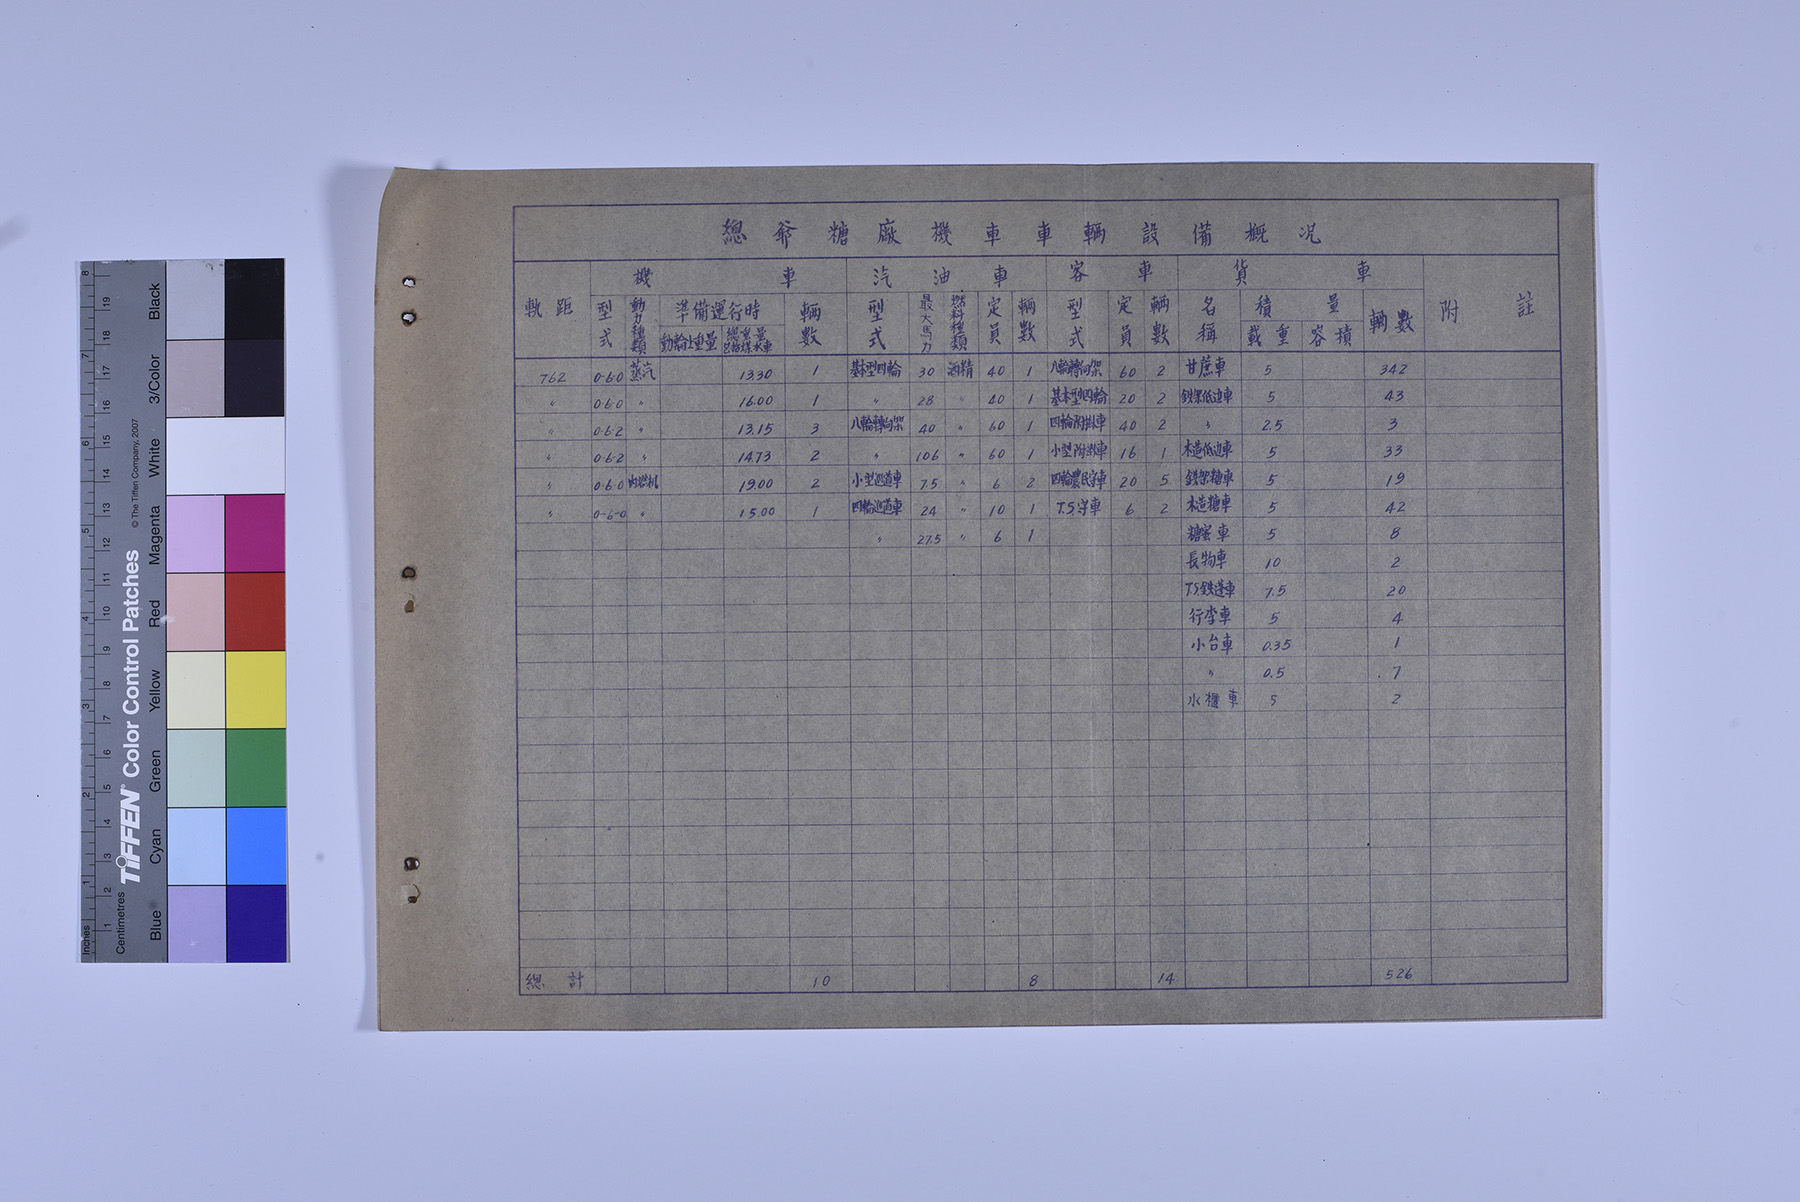 總爺糖廠機車車輛設備概况
軌距 機車 汽油車 客車 貨車 附註
型式 動力種類 準備運行時 輛數 型式 最大馬力 燃料種類 定員 輛數 型式 定員 輛數 名稱 積量 輛數
動輪上重量 總重量包括煤水車 載重 容積
762 0-6-0 蒸汽 13.30 1 基本型四輪 30 酒精 40 1 八輪轉向架 60 2 甘蔗車 5 342
〃 0-6-0 〃 16.00 1 〃 28 〃 40 1 基本型四輪 20 2 鉄架低边車 5 43
〃 0-6-2 〃 13.15 3 八輪轉向架 40 〃 60 1 四輪附掛車 40 2 〃 2.5 3
〃 0-6-2 〃 14.73 2 〃 106 〃 60 1 小型附掛車 16 1 木造低边車 5 33
〃 0-6-0 内燃机 19.00 2 小型巡道車 7.5 〃 6 2 四輪農民守車 20 5 鉄架糖車 5 19
〃 0-6-0 〃 15.00 1 四輪巡道車 24 〃 10 1 T.S.守車 6 2 木造糖車 5 42
〃 27.5 〃 6 1 糖蜜車 5 8
長物車 10 2
T.S鉄蓬車 7.5 20
行李車 5 4
小台車 0.35 1
〃 0.5 7
水櫃車 5 2
總計 10 8 14 526
Inches 1 2 3 4 5 6 7 8
Centimetres 1 2 3 4 5 6 7 8 9 10 11 12 13 14 15 16 17 18 19
TIFFEN® Color Control Patches © The Tiffen Company, 2007
Blue Cyan Green Yellow Red Magenta White 3/Color Black